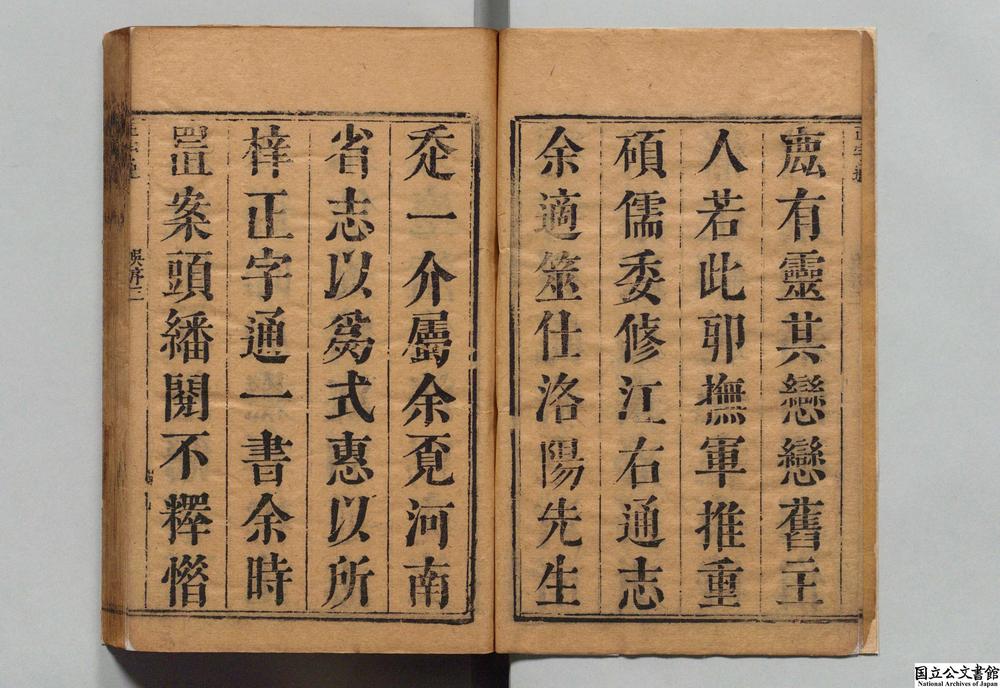 有靈其戀戀舊主
人若此耶撫軍推重
碩儒委修江右通志
余適筮仕洛陽先生
走一介屬余覓河南
省志以爲式惠以所
梓正字通一書余時
置案頭繙閱不釋憯
吳序三
国立公文書館
National Archives of Japan